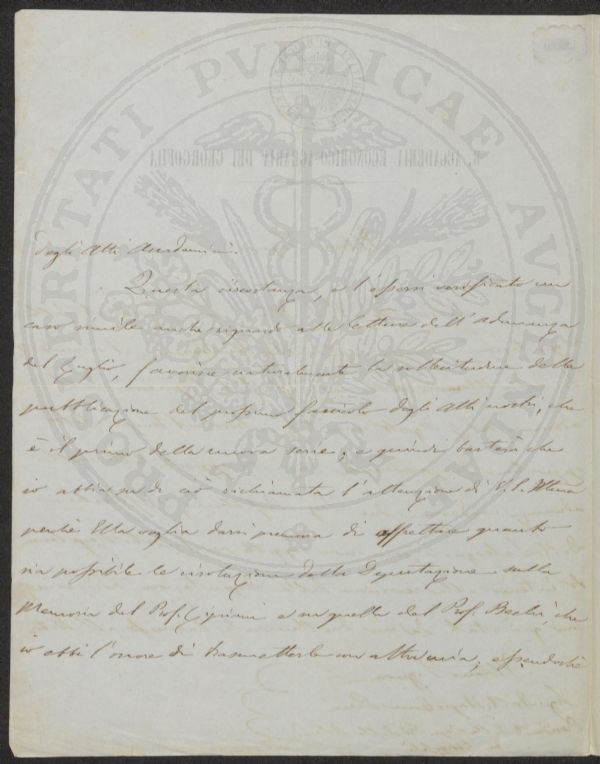 degli Atti Accademici.
Questa circostanza, e l'essersi verificato un
caso simile anche riguardo alle letture dell'adunanza
del Luglio, favorisce naturalmente la sollecitudine della
pubblicazione del prossimo fascicolo degli Atti nostri, che
è il primo della nuova serie; e quindi basterà che
io abbia su di ciò richiamata l'attenzione di V. S. Illma
perché Ella voglia darsi premura di affrettare quanto
sia possibile le risoluzioni della Deputazione sulla
Memoria del Prof. Cipriani e su quella del Prof. Bechi che
io ebbi l'onore di trasmetterle con altra mia; essendoché
PROSPERITATI PVBLICAE AVGENDAE
R. ACCADEMIA ECONOMICO-AGRARIA DEI GEORGOFILI